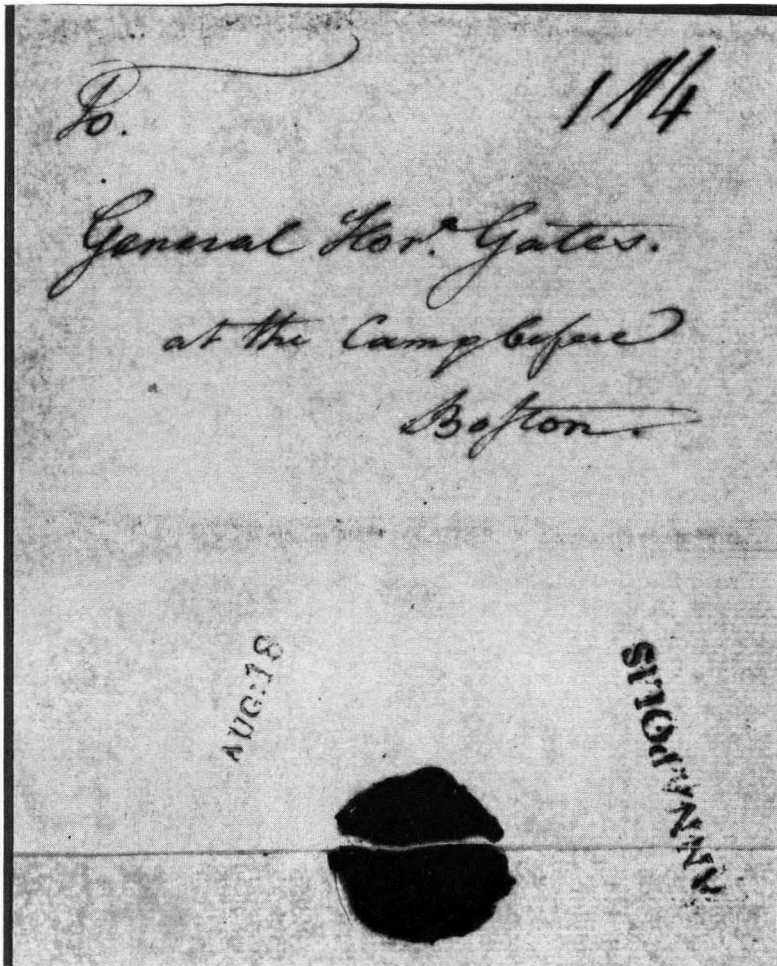 To. 1N4
General Horº. Gates.
at the Camp before
Boſton.
AUG:18
ANNAPOLIS